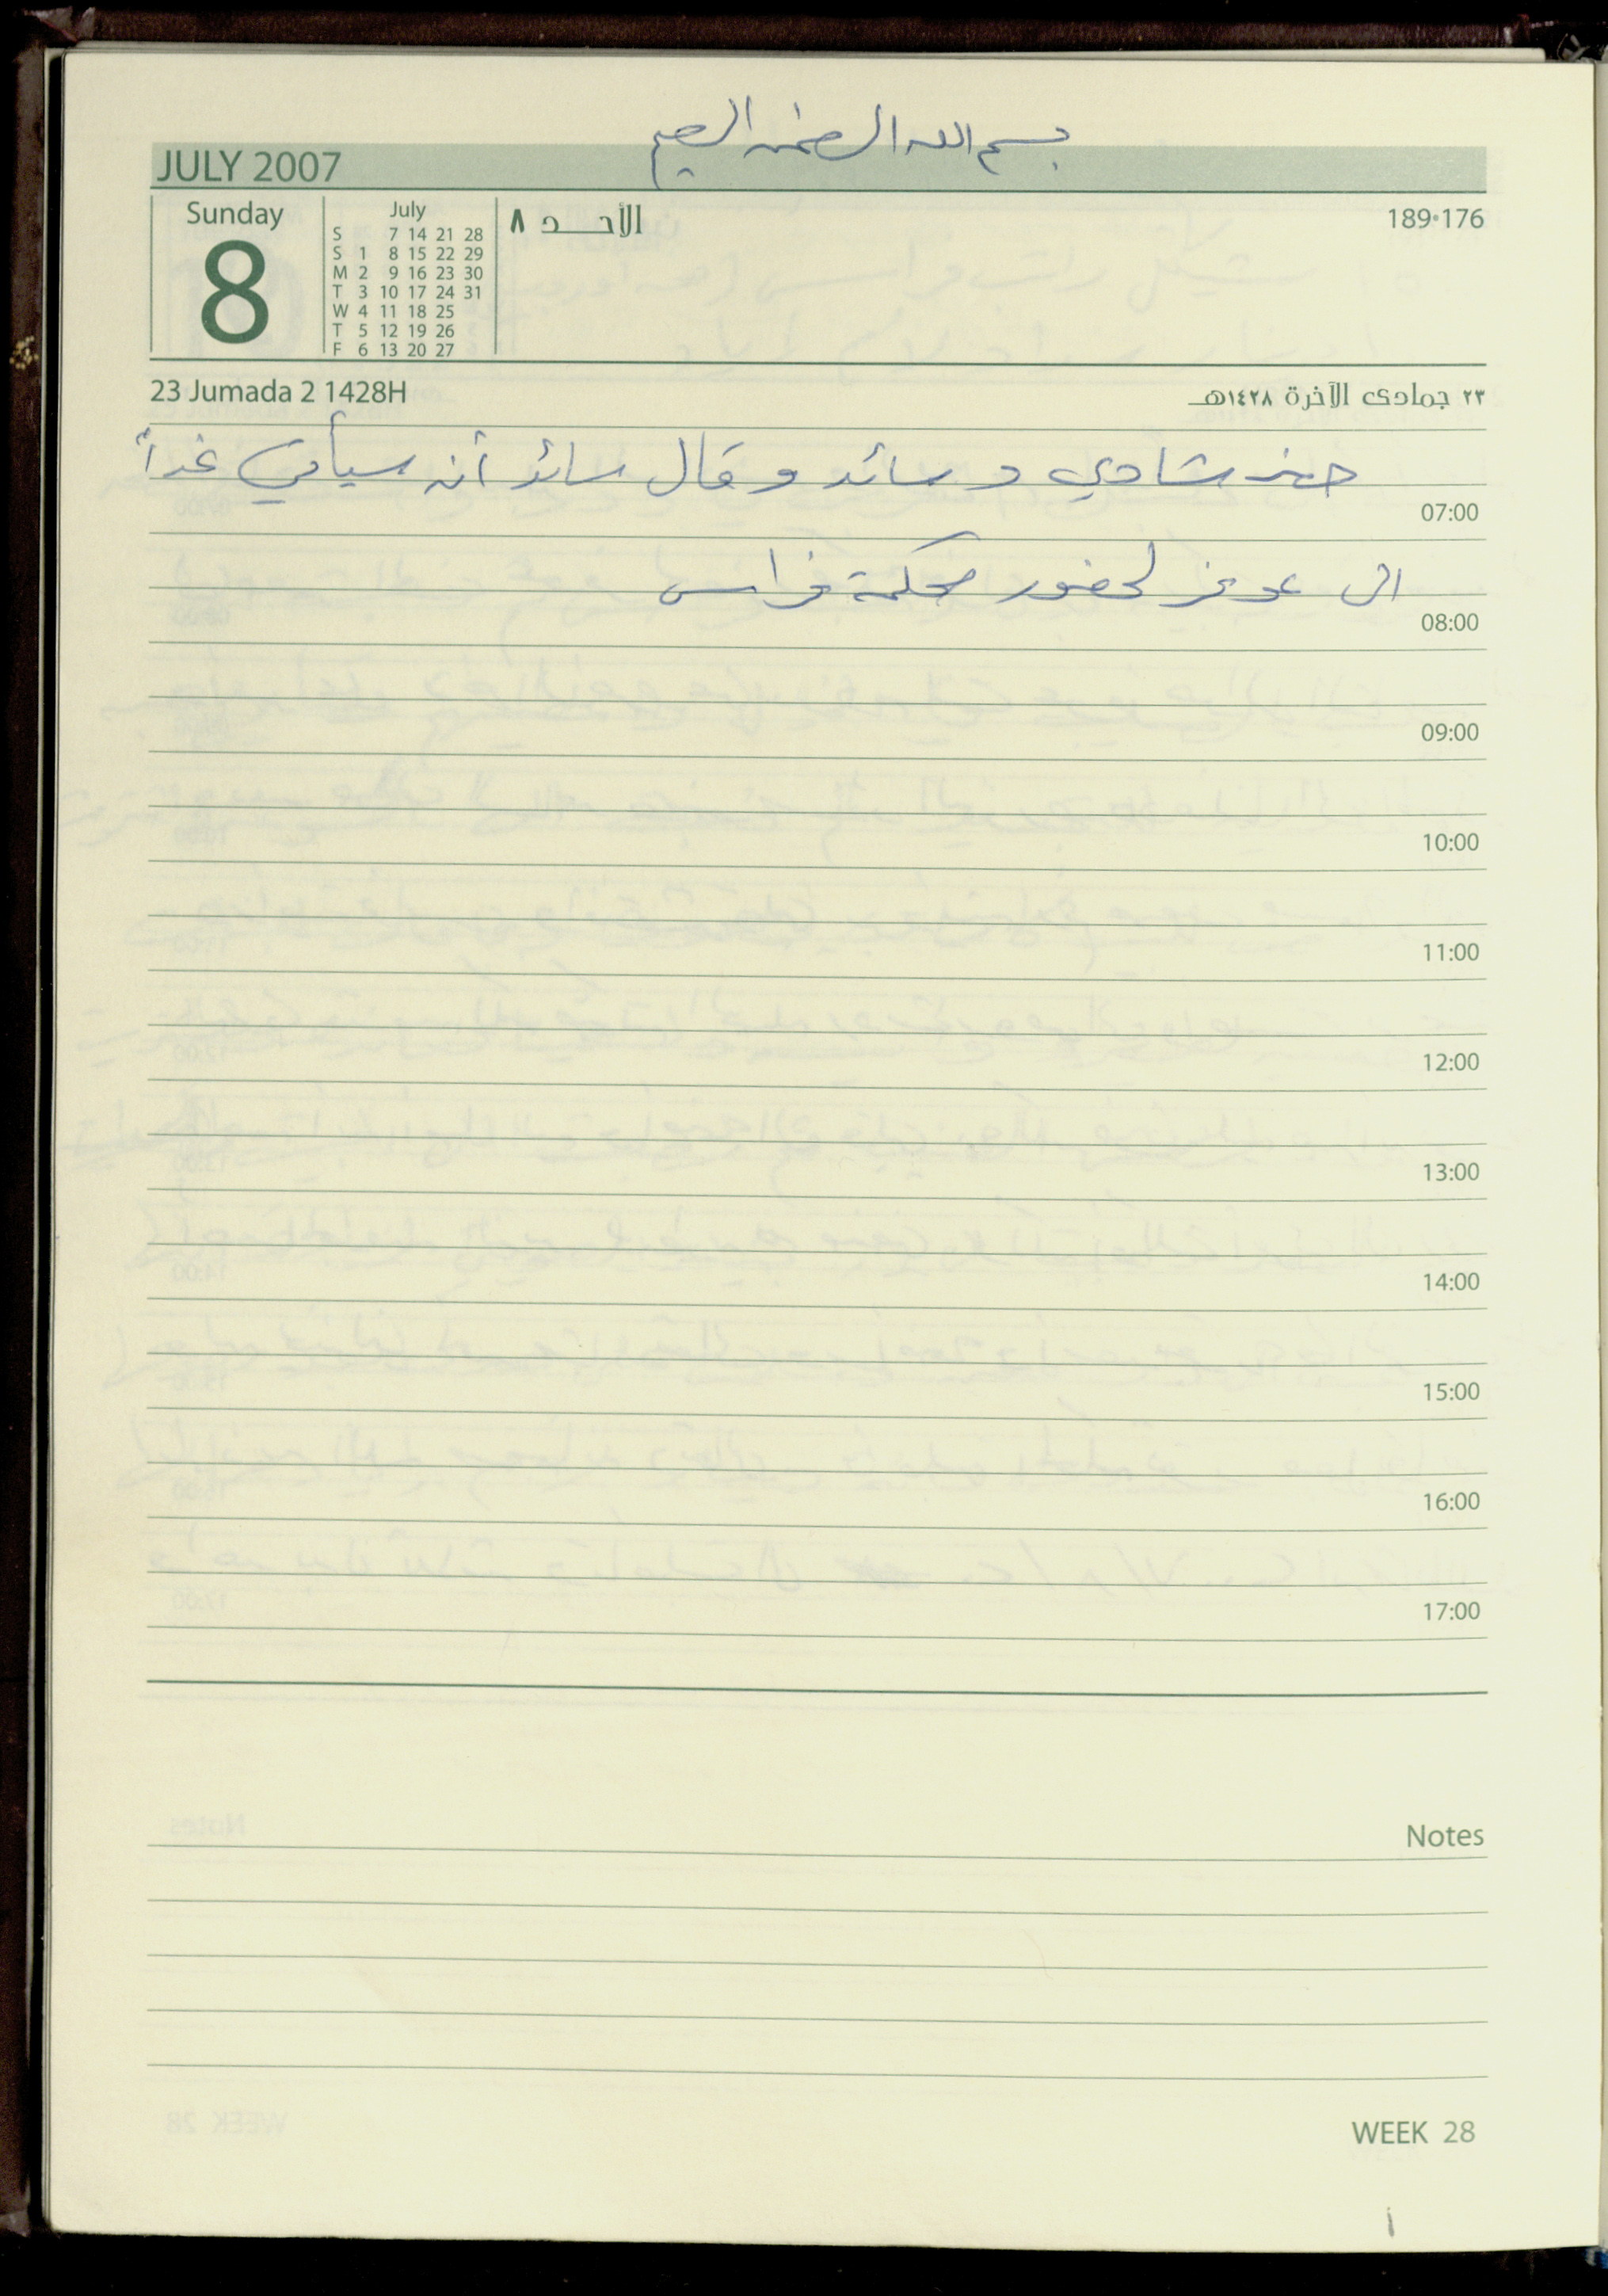 بسم الله الرحمن الرحيم
JULY 2007
Sunday
8
July
S 7 14 21 28
S 1 8 15 22 29
M 2 9 16 23 30
T 3 10 17 24 31
W 4 11 18 25
T 5 12 19 26
F 6 13 20 27
الأحد ٨
189•176
23 Jumada 2 1428H
٢٣ جمادى الآخرة ١٤٢٨هـ
حضر شادي و سائد و قال سائد أنه سيأتي غداً
07:00
الى عوفر لحضور محكمة فراس
08:00
09:00
10:00
11:00
12:00
13:00
14:00
15:00
16:00
17:00
Notes
WEEK 28